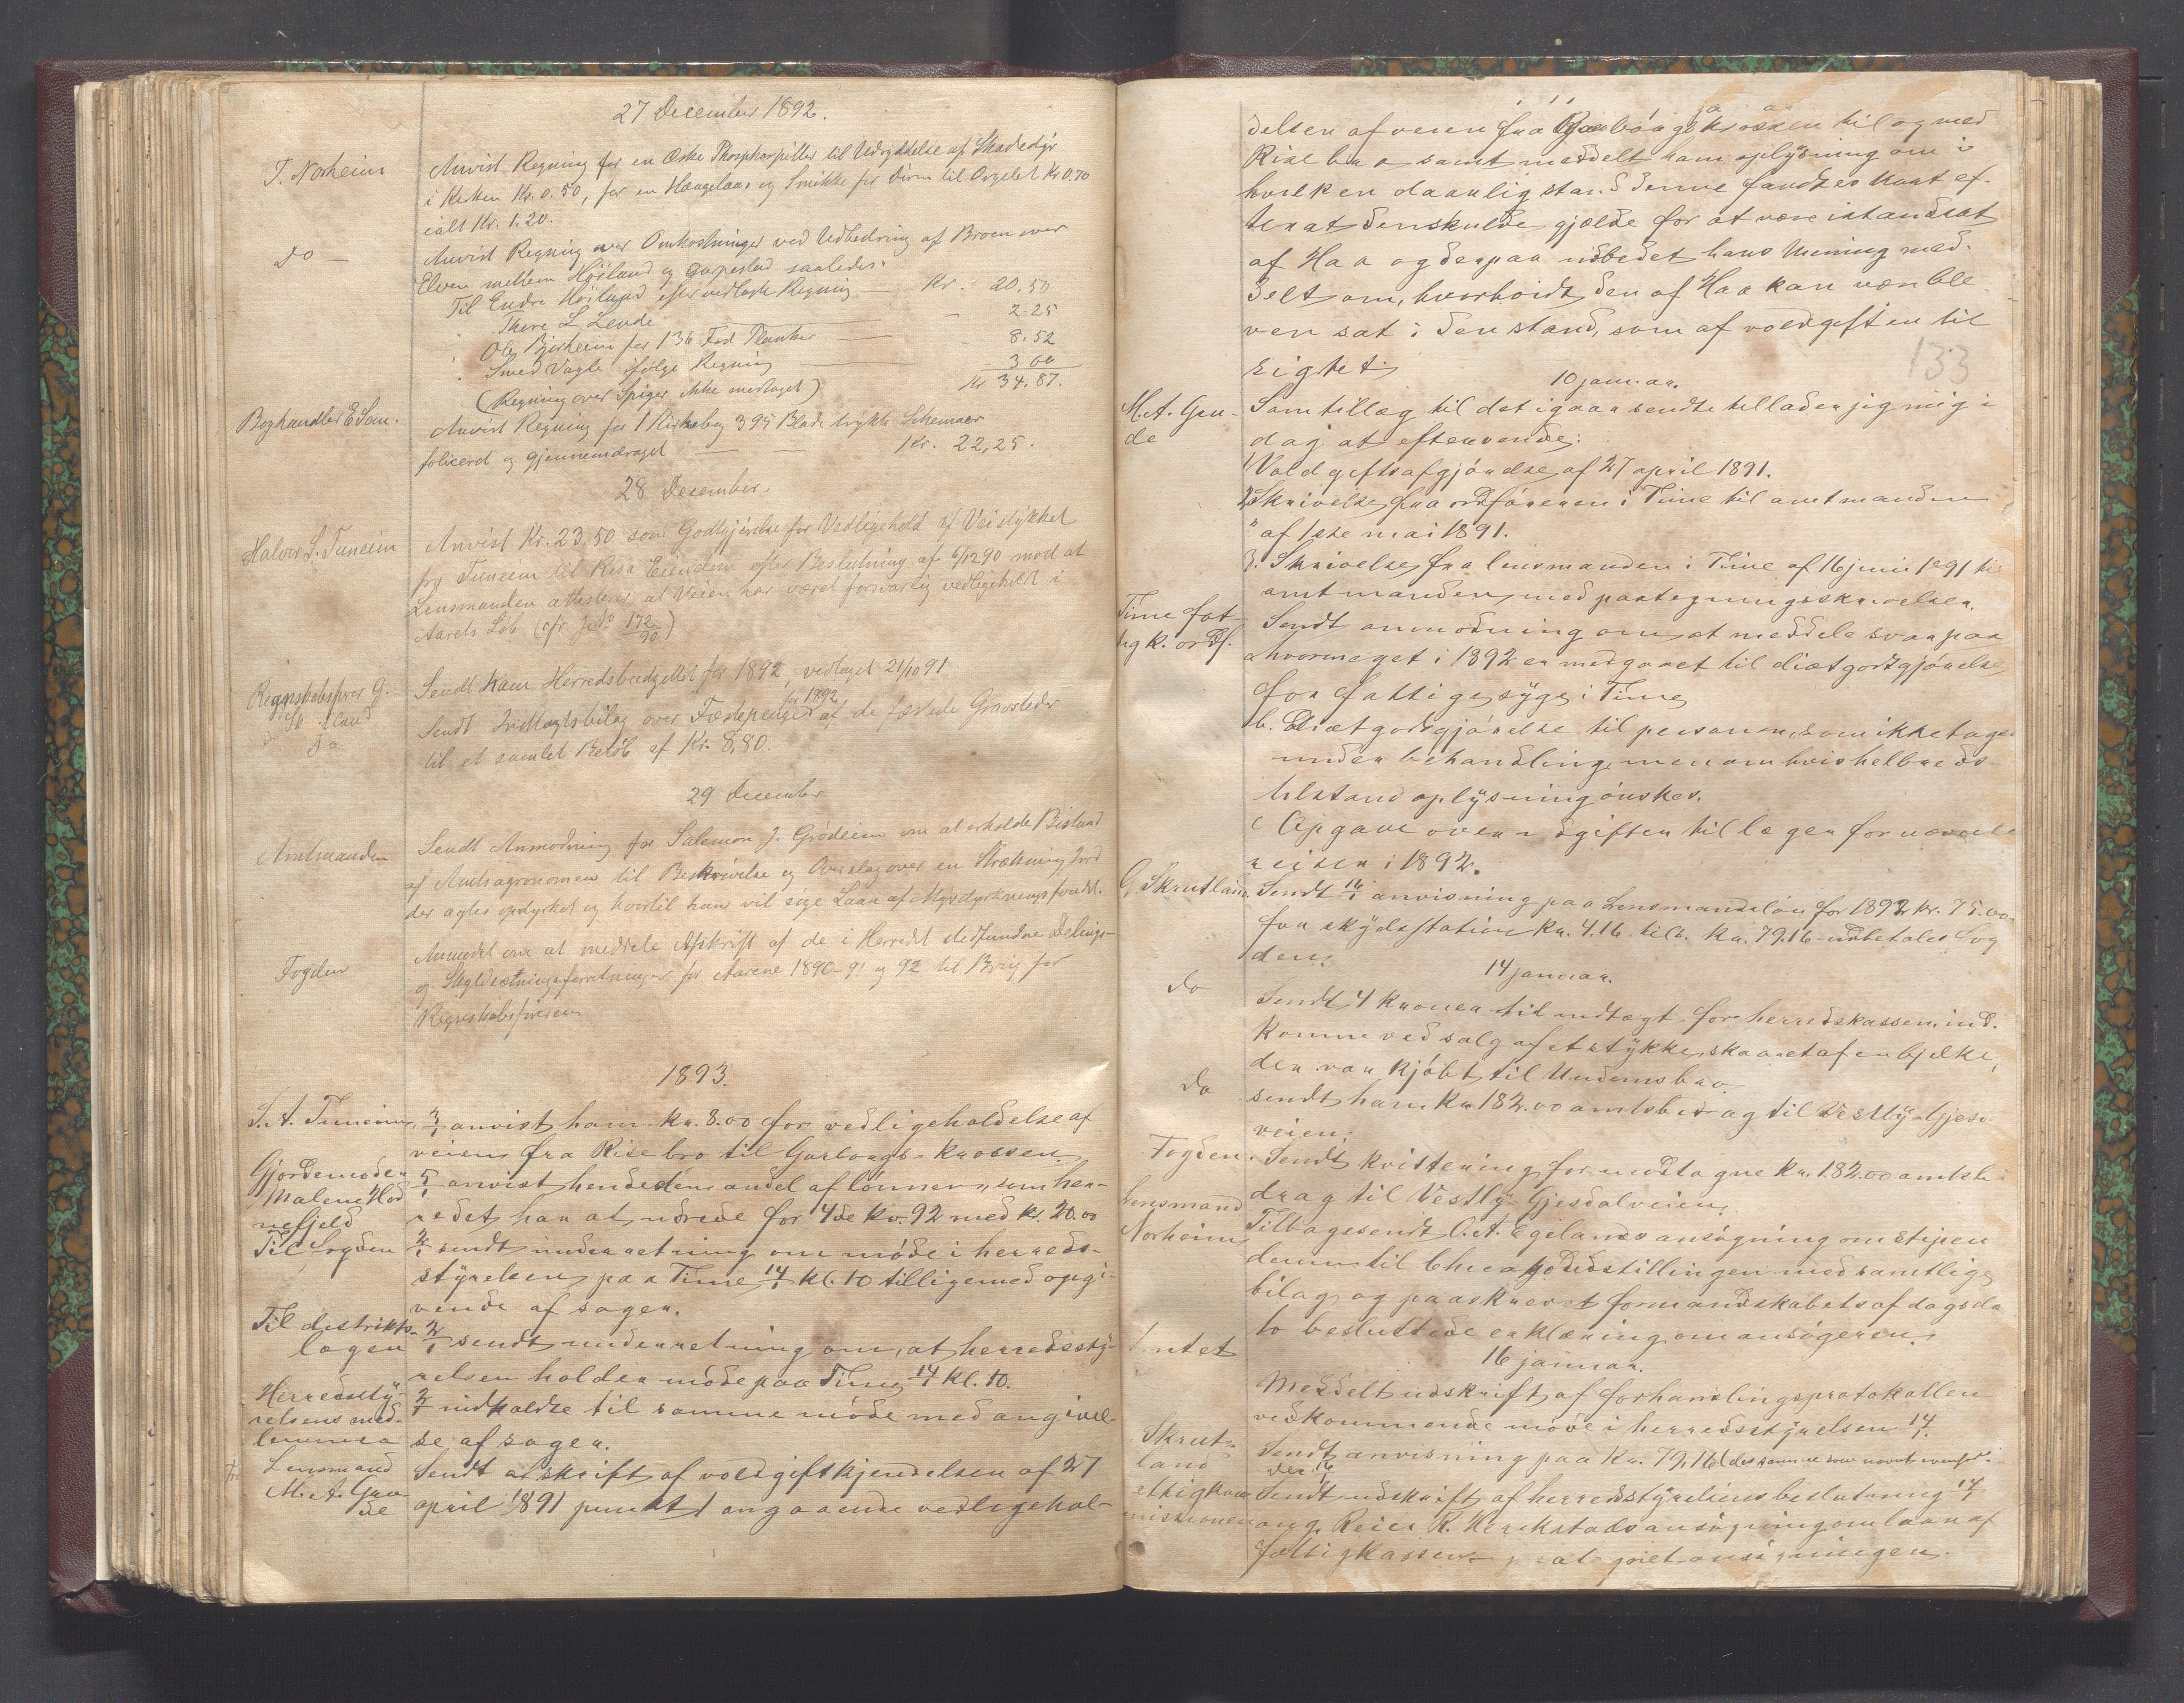 27 December 1892.
T. Norheim
Anvist Regning for en Æske Phosphorpiller til Udryddelse af Skadedyr
i Kirken Kr. 0.50, for en Hængelaas og Smikke for Døren til Orgelet Kr 0.70
ialt Kr. 1.20.
Do —
Anvist Regning over Omkostninger ved Udbedring af Broen over
Elven mellem Höiland og Garpestad saaledes:
Til Endre Höiland efter vedlagte Regning — Kr. 20.50
" Thore L Lende — 2.25
" Ole Bjerheim for 136 Fod Planker — 8.52
" Smed Vagle ifølge Regning — 3 00
(Regning over Spiger ikke modtaget) Kr 34.87.
Boghandler E Søm.
Anvist Regning for 1 Kirkebog 395 Blade trykte Schemaer
folieret og gjennemdraget — — Kr. 22,25.
28 December.
Halvor L. Tuneim
Anvist Kr. 23.50 som Godtgjörelse for Vedligehold af Veistykket
fra Tuneim til Risa Eiendom efter Beslutning af 6/12 90 mod at
Lensmanden attesterer at Veien har været forsvarlig vedligeholdt i
Aarets Løb (cfr. J. No 172/90)
Regnskabsfører G.
Sk land
Sendt ham Herredsbudgettet for 1892, vedtaget 21/10 91
Do
Sendt Indtægtsbilag over Fæstepenger for 1892 af de fæstede Gravsteder
til et samlet Beløb af Kr. 8,80.
29 December
Amtmanden
Sendt Anmodning for Salemon J. Grödeim om at erholde Bistand
af Amtsagronomen til Beskrivelse og Overslag over en Strækning Jord
der agtes opdyrket og hvortil han vil søge Laan af Myrdyrkningsfondet.
Fogden
Anmodet om at meddele Afskrift af de i Herredet stedfundne Delings-
og Skyldsætningsforretninger for Aarene 1890-91 og 92 til Brug for
Regnskabsføreren
1893.
S. A. Tuneim
3/1 anvist ham kr. 8.00 for vedligeholdelse af
veien fra Rise bro til Garborgs-krossen.
Gjordemoder
Malene Hog
nefjeld
5/1 anvist hende den andel af lønnen, som her-
redet har at udrede for 4de kv. 92 med kr. 20.00
Til Fogden
7/1 sendt underretning om møde i herreds-
styrelsen paa Time 14/1 kl. 10 tilligemed opgi-
vende af sager.
Til distrikts-
lægen
7/1 sendt underretning om, at herredssty-
relsen holder møde paa Time 14/1 kl. 10.
Herredssty-
relsens med-
lemmer
7/1 indkaldte til samme møde med angivel-
se af sager.
Lensmand
M. A. Gru-
de
Sendt afskrift af voldgiftskjendelsen af 27
april 1891 punkt 1 angaaende vedligehol-
delsen af veien fra Garborgskrossen til og med
Rise bro samt meddelt ham oplysning om i
hvilken daarlig stand denne fandtes snart ef-
ter at den skulde gjælde for at være istandsat
af Haa og derpaa udbedet hans mening med-
delt om, hvorvidt den af Haa kan være ble
ven sat i den stand, som af voldgiften til
sigtet.
133
10 januar.
M. A. Gru-
de
Som tillæg til det igaar sendte tillader jeg mig i
dag at eftersende:
1 Voldgiftsafgjørelse af 27 april 1891.
2 Skrivelse fra ordføreren i Time til amtmanden
" af 1ste mai 1891.
3. Skrivelse fra lensmanden i Time af 16 juni 1891 til
amtmanden med paategningsskrivelser.
Time fat-
tigk. ordf.
Sendt anmodning om at meddele svar paa
a hvormeget i 1892 er medgaaet til diætgodtgjørelse
for fattige syge i Time
b. Diætgodtgjørelse til personer, som ikke tages
under behandling, men om hvis helbreds-
tilstand oplysning ønskes.
c Opgave over udgiften til læger for nævnte
reiser i 1892.
G. Skrutland
Sendt 16/1 anvisning paa Lensmandsløn for 1892 kr. 75.00
fra skydsstation kr. 4.16 tils. kr. 79.16 udbetales Fog
den.
14 januar.
do
Sendt 4 kroner til indtægt for herredskassen, ind-
komne ved salg af et stykke, skaaret af en bjelke,
der var kjøbt til Undemsbro.
do
sendt ham kr. 182.00 amtsbidrag til Vestly-Gjesd
veien.
Fogden.
Sendt kvittering for modtagne kr. 182.00 amtsbi-
drag til Vestly-Gjesdalveien.
Lensmand
Norheim
Tilbagesendt O. A. Egelands ansøgning om stipen
dium til Chicagoudstillingen med samtlige
bilag og paaskrevet formandskabets af dags da
to besluttede erklæring om ansøgeren.
16 januar.
Amtet
Meddelt udskrift af forhandlingsprotokollen
vedkommende møde i herredsstyrelsen 14/1.
Skrut-
land
Sendt anvisning paa kr. 79,16 (det samme som nævnt ovenfor
den 16/1
attigkom
missionen
Sendt udskrift af herredsstyrelsens beslutning 14/1
ang. Reier R. Herikstads ansøgning om laan af
fattigkassen ansøgningen.